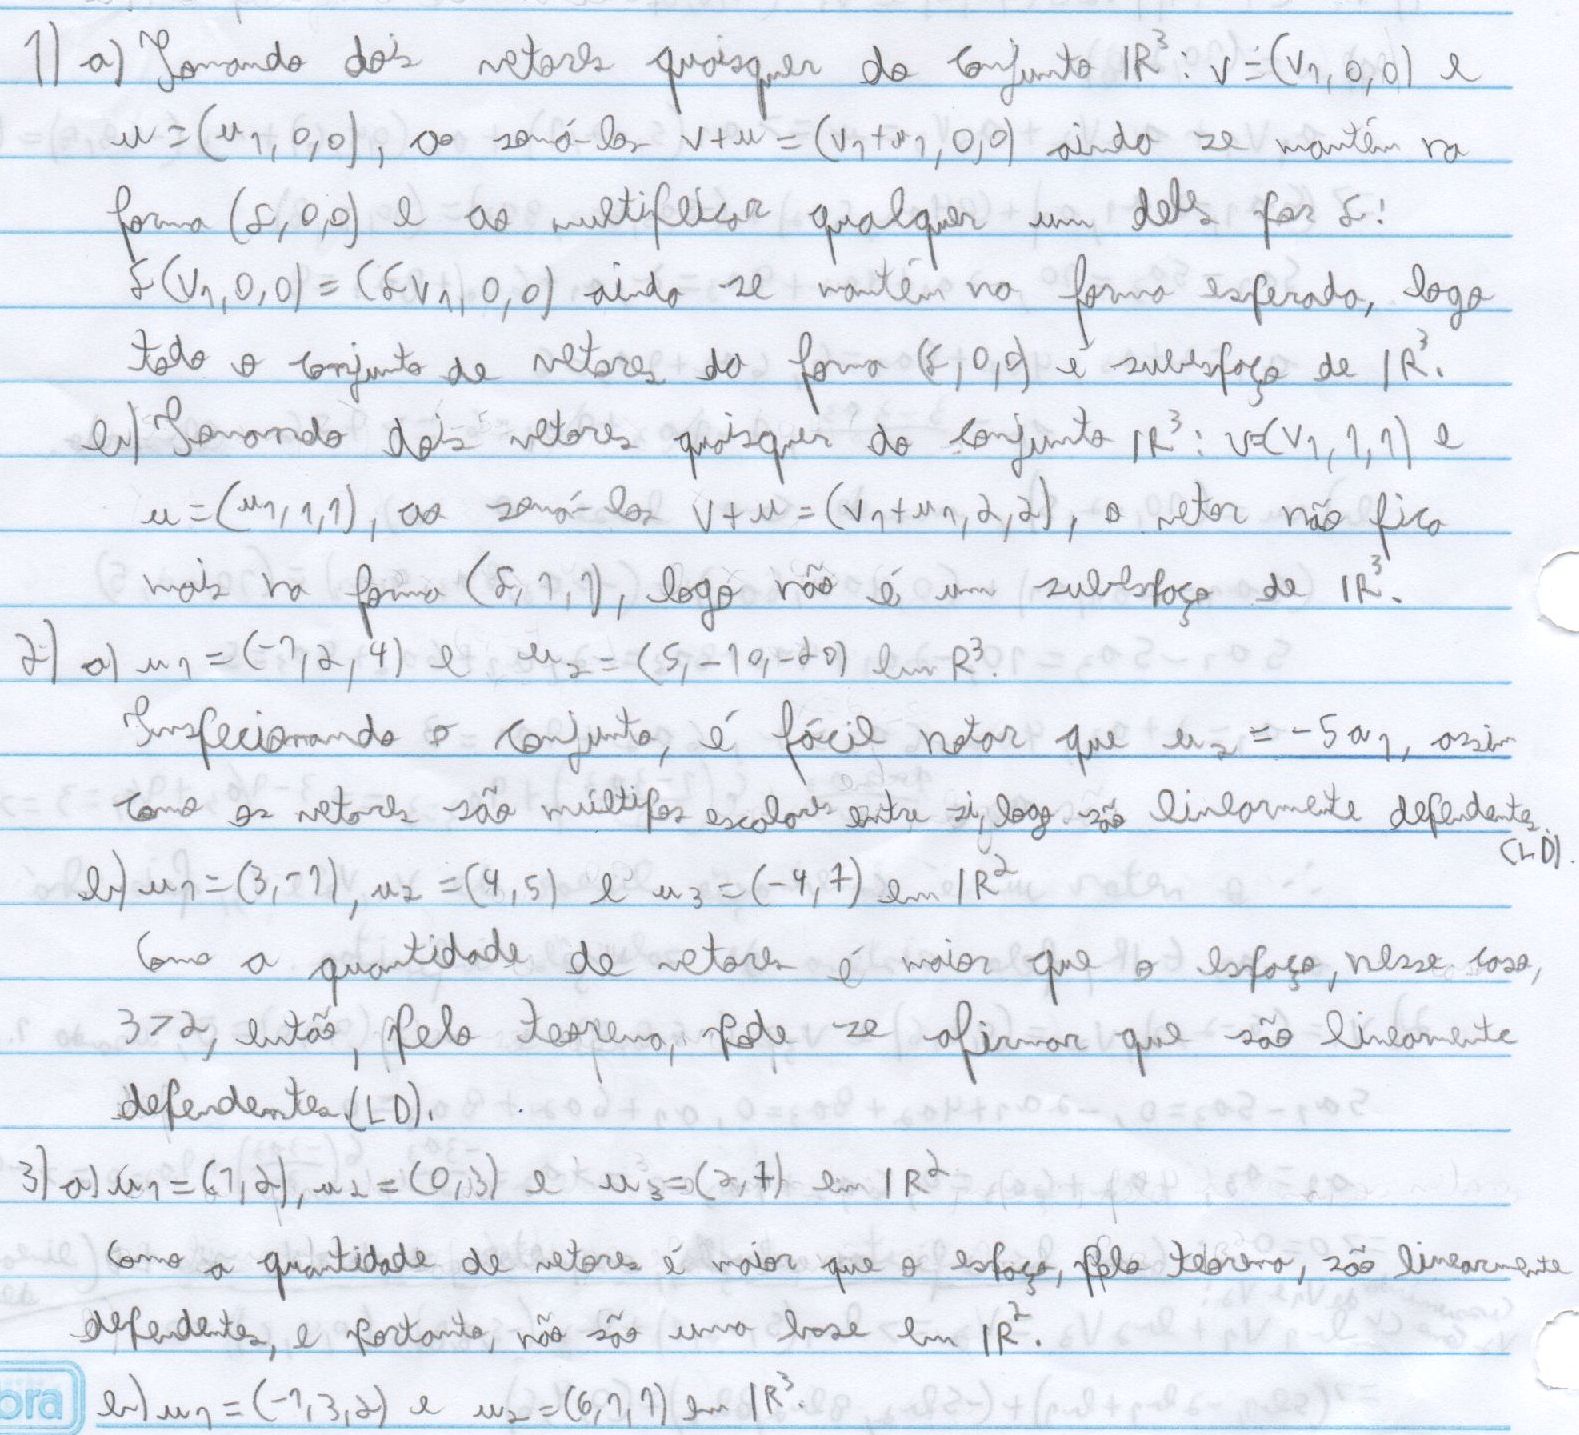 1) a) Tomando dois vetores quaisquer do conjunto IR³: v=(v1,0,0) e
u=(u1,0,0), ao somá-los v+u=(v1+u1,0,0) ainda se mantém na
forma (δ,0,0) e ao multiplicar qualquer um deles por δ:
δ(v1,0,0)=(δv1,0,0) ainda se mantém na forma esperada, logo
todo o conjunto de vetores da forma (δ,0,0) é subespaço de IR³.
b) Tomando dois vetores quaisquer do conjunto IR³: v=(v1,1,1) e
u=(u1,1,1), ao somá-los v+u=(v1+u1,2,2), o vetor não fica
mais na forma (δ,1,1), logo não é um subespaço de IR³.
2) a) u1=(-1,2,4) e u2=(5,-10,-20) em R³.
Inspecionando o conjunto, é fácil notar que u2=-5u1, assim
como os vetores são múltiplos escalares entre si, logo são linearmente dependentes.
(LD).
b) u1=(3,-1), u2=(4,5) e u3=(-4,7) em IR²
Como a quantidade de vetores é maior que o espaço, nesse caso,
3>2, então, pelo teorema, pode se afirmar que são linearmente
dependentes.(LD).
3) a) u1=(1,2), u2=(0,3) e u3=(2,7) em IR²
Como a quantidade de vetores é maior que o espaço, pelo teorema, são linearmente
dependentes, e portanto, não são uma base em IR².
bra
b) u1=(-1,3,2) e u2=(6,1,1) em IR³.